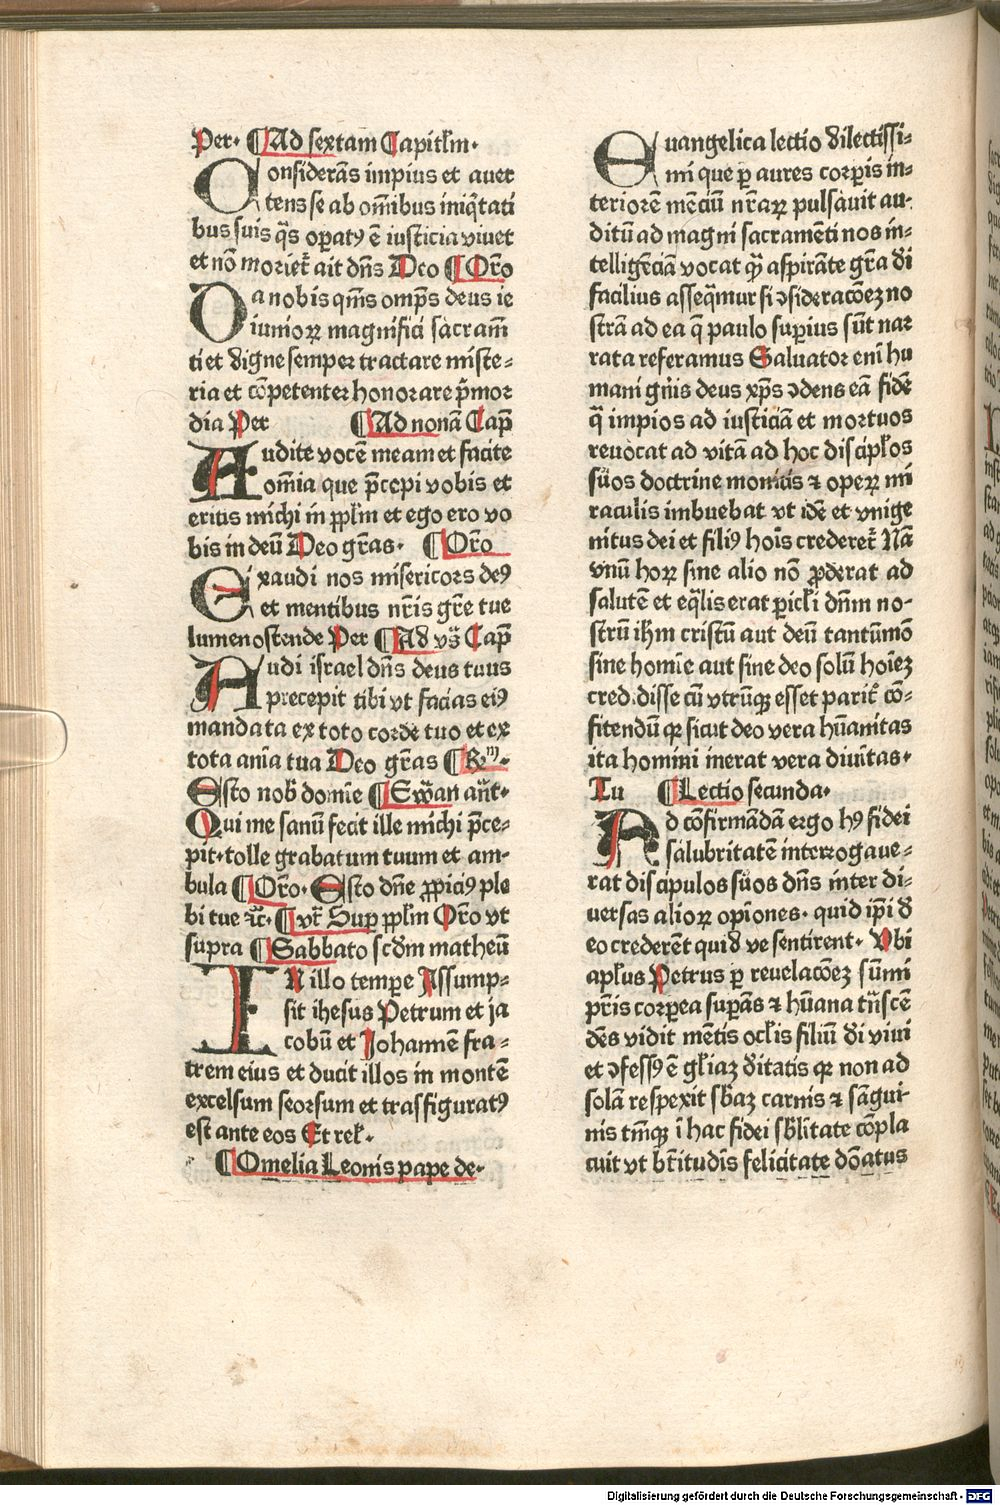 Per· ¶Ad sextam Capitłm·
Considerās impius et auer
tens se ab om̄ibus iniq̄tati
bus suis q̄s operatꝰ ē iusticia viuet
et nō morieť ait dn̄s Deo ¶Or̄o
Da nobis qm̄s omp̄s deus ie
iunioꝝ magnifici sacram̄
ti et digne semper tractare miste⸗
ria et cōpetenter honorare p̄mor
dia Per ¶Ad nonā Cap̄
Audite vocē meam et facite
om̄ia que p̄cepi vobis et
eritis michi in ꝓpłm et ego ero vo
bis in deū Deo gr̄as· ¶Or̄o
Exaudi nos misericors deꝰ
et mentibus nr̄is gr̄e tue
lumen ostende Per ¶Ad vs̄ Cap̄
Audi israel dn̄s deus tuus
precepit tibi vt facias eiꝰ
mandata ex toto corde tuo et ex
tota anīa tua Deo gr̄as ¶Rm·
Esto nob̄ domīe ¶Ewan an̄t·
Qui me sanū fecit ille michi p̄ce⸗
pit·tolle grabatum tuum et am⸗
bula ¶Or̄o·Esto dn̄e ꝓpiciꝰ ple
bi tue ꝛc̄· ¶vr̄ Suꝑ ꝓpłm Or̄o vt
supra ¶Sabbato scd̄m matheū
IN illo tempeꝛ Assump⸗
sit ihesus Petrum et ja
cobū et Johannē fra⸗
trem eius et ducit illos in montē
excelsum seorsum et trasfiguratꝰ
est ante eos Et rel̄·
¶Omelia Leonis pape de·
Euangelica lectio dilectissi⸗
mi que ꝑ aures corꝑis in⸗
teriorē mēciū nr̄aꝝ pulsauit au⸗
ditū ad magni sacramēti nos in⸗
telligēciā vocat qꝫ aspirāte gr̄a di
facilius asseq̄mur si ɔsideracōeꝫ no
strā ad ea q̄ paulo suꝑius sūt nar
rata referamus Saluator enī hu
mani gn̄is deus xp̄s ɔdens eā fidē
q̄ impios ad iusticiā et mortuos
reuocat ad vitā ad hoc discipłos
suos doctrine monitis ⁊ operꝝ mi
raculis imbuebat vt idē et vnige
nitus dei et filiꝰ hoīs credereť Nā
vnū horꝝ sine alio nō ꝓderat ad
salutē et eq̄lis erat ꝑicłi dn̄m no⸗
strū ih̄m cristū aut deū tantūmō
sine homīe aut sine deo solū hoīeꝫ
credidisse cū vtrūqꝫ esset pariť cō⸗
fitendū qꝛ sicut deo vera hūanitas
ita homini inerat vera diuītas·
Tu ¶Lectio secunda·
Ad cōfirmādā ergo hꝰ fidei
salubritatē interrogaue⸗
rat discipulos suos dn̄s inter di⸗
uersas alioꝝ opīones· quid ip̄i d̄
eo crederēt quid ve sentirent· Vbi
apłus Petrus ꝑ reuelacōeꝫ sūmi
pr̄is corꝑea suꝑās ⁊ hūana tn̄scē
dēs vidit mētis ocłis filiū di viui
et ɔfessꝰ ē głiaꝫ d̄itatis qꝛ non ad
solā respexit sb̄aꝫ carnis ⁊ sāgui⸗
nis tm̄qꝫ ī hac fidei sb̄līitate cōpla
cuit vt bt̄itudīs felicitate dōatus
Digitalisierung gefördert durch die Deutsche Forschungsgemeinschaft - DFG